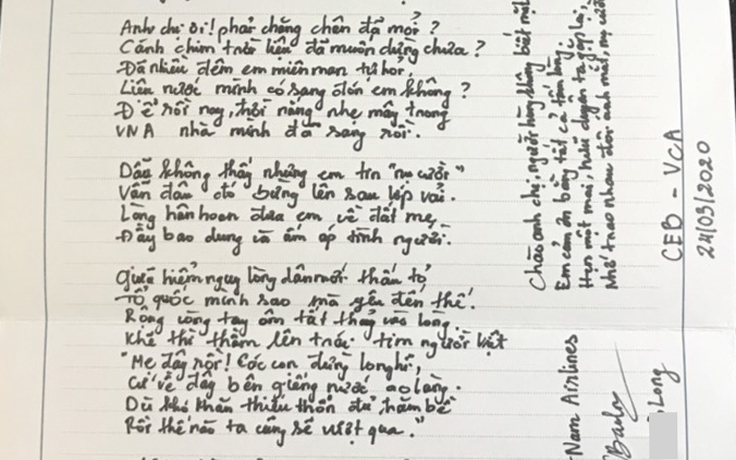 Anh chị ơi! phải chăng chân đã mỏi?
Cánh chim trời liệu đã muốn dừng chưa?
Đã nhiều đêm em miên man tự hỏi,
Liệu nước mình có sang đón em không?
Để rồi nay, trời nắng nhẹ mây trong
VNA nhà mình đã sang rồi.
Dẫu không thấy nhưng em tin "nụ cười"
Vẫn đâu đó bừng lên sau lớp vải.
Lòng hân hoan đưa em về đất mẹ,
Đầy bao dung và ấm áp tình người.
Giữa hiểm nguy lòng dân mới thấu tỏ
Tổ quốc mình sao mà yêu đến thế!
Rộng vòng tay ôm tất thảy vào lòng.
Khẽ thì thầm lên trái tim người Việt
"Mẹ đây rồi! Các con đừng lo nghĩ,
Cứ về đây bên giếng nước ao làng.
Dù khó khăn thiếu thốn đủ trăm bề
Rồi thế nào ta cũng sẽ vượt qua."
Chào anh chị, người hùng không biết mặt
Em cảm ơn bằng tất cả tấm lòng.
Hẹn một mai, hữu duyên ta gặp lại,
Nhớ trao nhau đôi ánh mắt, nụ cười
CEB - VCA
24/03/2020
Nam Airlines
Long